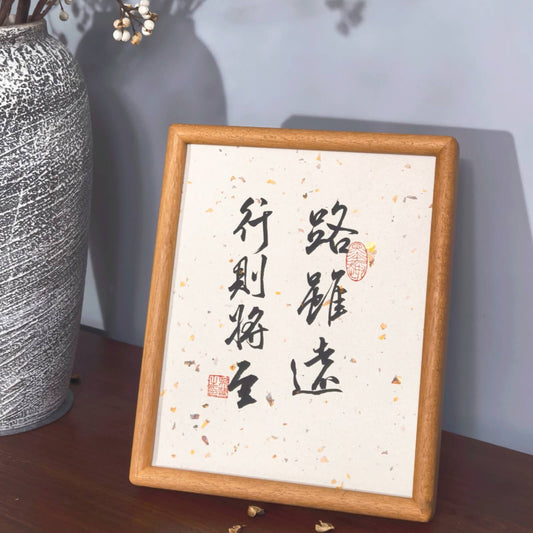 路雖遠
行則將至